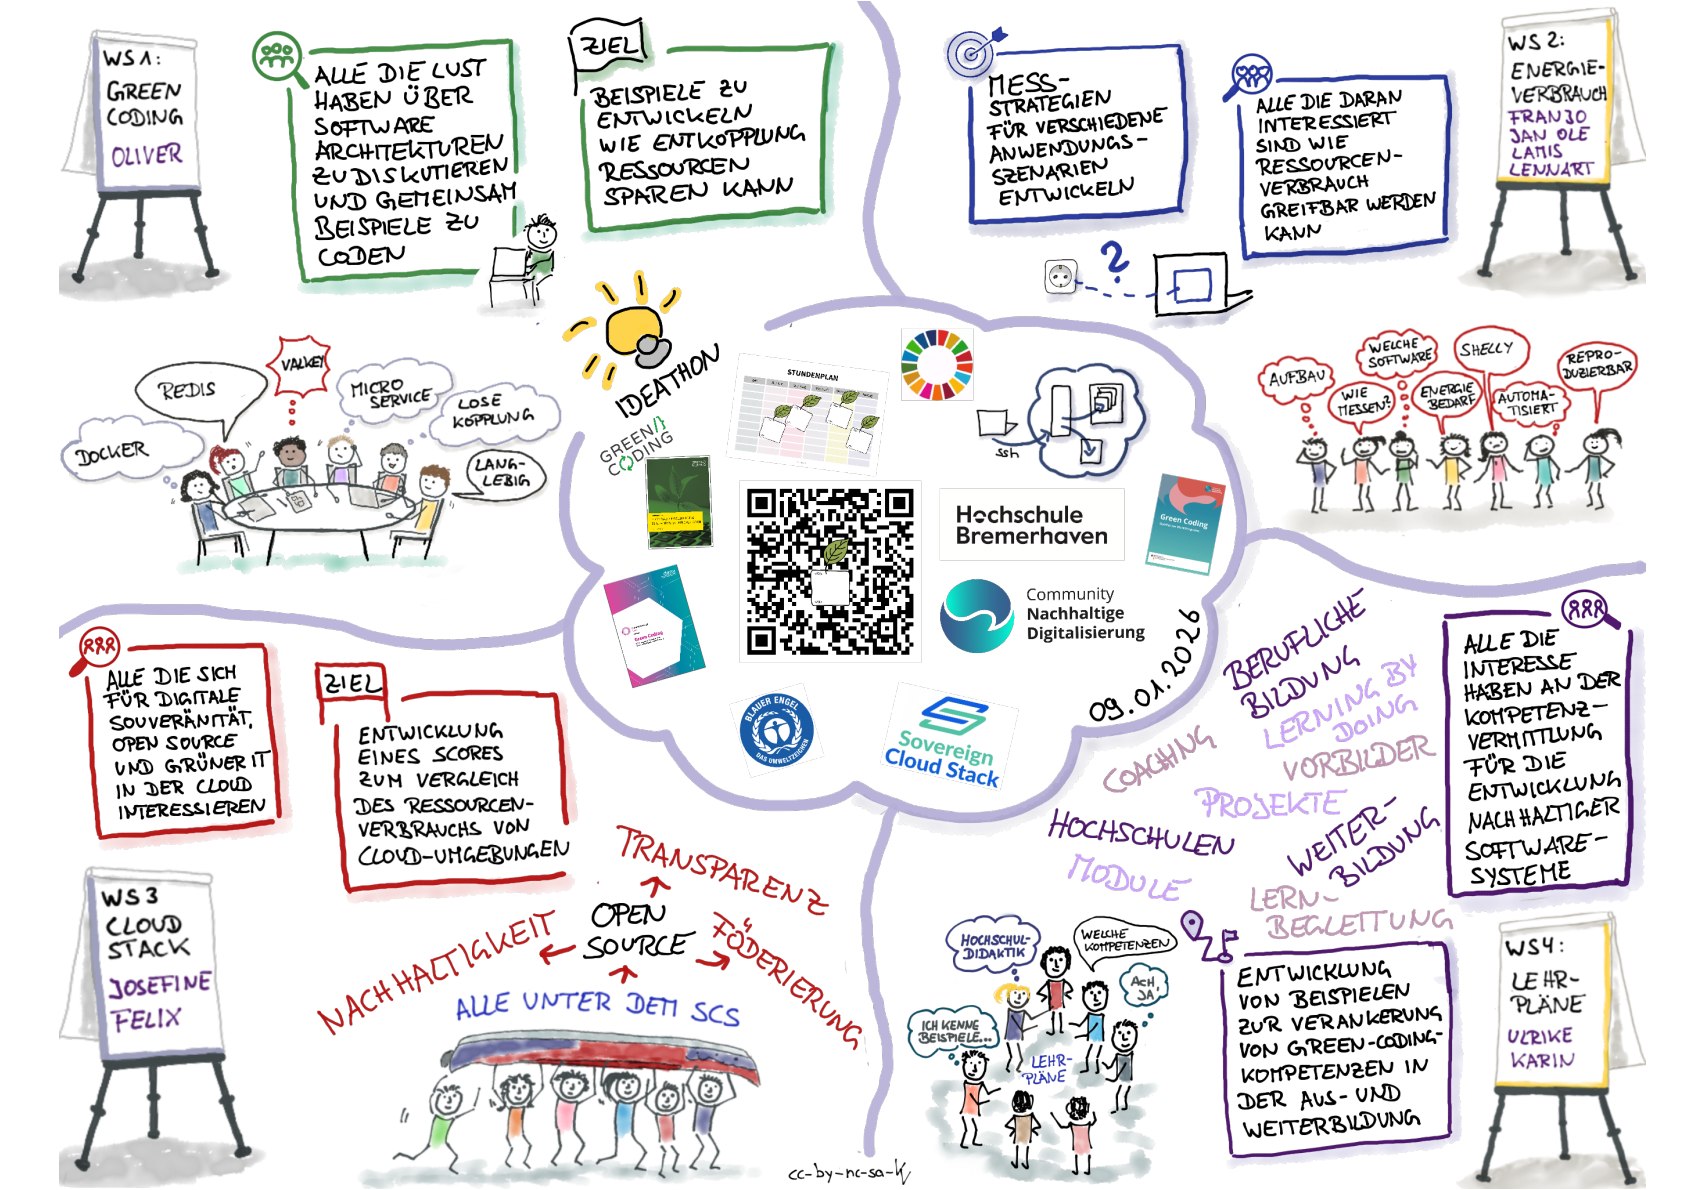 WS 1:
GREEN
CODING
OLIVER
ALLE DIE LUST
HABEN ÜBER
SOFTWARE
ARCHITEKTUREN
ZU DISKUTIEREN
UND GEMEINSAM
BEISPIELE ZU
CODEN
ZIEL
BEISPIELE ZU
ENTWICKELN
WIE ENTKOPPLUNG
RESSOURCEN
SPAREN KANN
DOCKER
REDIS
VALKEY
MICRO
SERVICE
LOSE
KOPPLUNG
LANG-
LEBIG
MESS-
STRATEGIEN
FÜR VERSCHIEDENE
ANWENDUNGS-
SZENARIEN
ENTWICKELN
ALLE DIE DARAN
INTERESSIERT
SIND WIE
RESSOURCEN-
VERBRAUCH
GREIFBAR WERDEN
KANN
WS 2:
ENERGIE-
VERBRAUCH
FRANJO
JAN OLE
LAMIS
LENNART
?
AUFBAU
WIE
MESSEN?
WELCHE
SOFTWARE
ENERGIE
BEDARF
SHELLY
AUTOMA-
TISIERT
REPRO-
DUZIERBAR
IDEATHON
GREEN
CODING
STUNDENPLAN
ssh
Hochschule
Bremerhaven
Green Coding
Community
Nachhaltige
Digitalisierung
Green Coding
BLAUER ENGEL
DAS UMWELTZEICHEN
Sovereign
Cloud Stack
09.01.2026
ALLE DIE SICH
FÜR DIGITALE
SOUVERÄNITÄT,
OPEN SOURCE
UND GRÜNER IT
IN DER CLOUD
INTERESSIEREN
ZIEL
ENTWICKLUNG
EINES SCORES
ZUM VERGLEICH
DES RESSOURCEN-
VERBRAUCHS VON
CLOUD-UMGEBUNGEN
WS 3
CLOUD
STACK
JOSEFINE
FELIX
TRANSPARENZ
NACHHALTIGKEIT
OPEN
SOURCE
FÖDERIERUNG
ALLE UNTER DEM SCS
cc-by-nc-sa-
BERUFLICHE
BILDUNG
LERNING BY
DOING
COACHING
VORBILDER
PROJEKTE
HOCHSCHULEN
WEITER-
BILDUNG
MODULE
LERN-
BEGLEITUNG
ALLE DIE
INTERESSE
HABEN AN DER
KOMPETENZ-
VERMITTLUNG
FÜR DIE
ENTWICKLUNG
NACHHALTIGER
SOFTWARE-
SYSTEME
HOCHSCHUL-
DIDAKTIK
WELCHE
KOMPETENZEN
ACH,
JA!
ICH KENNE
BEISPIELE...
LEHR-
PLÄNE
ENTWICKLUNG
VON BEISPIELEN
ZUR VERANKERUNG
VON GREEN-CODING-
KOMPETENZEN IN
DER AUS- UND
WEITERBILDUNG
WS4:
LEHR-
PLÄNE
ULRIKE
KARIN